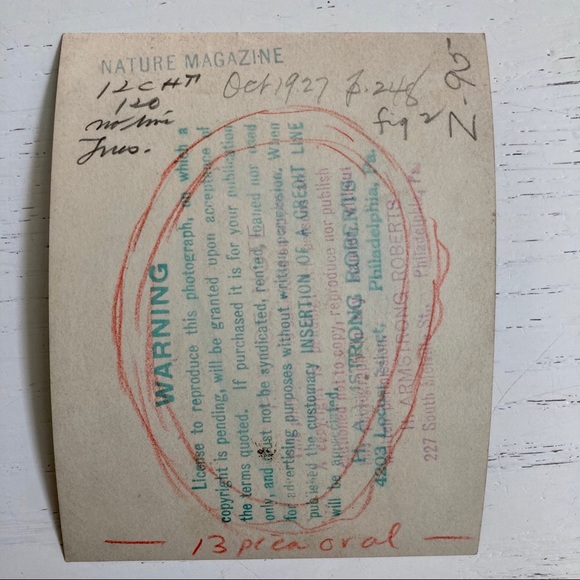 NATURE MAGAZINE
Oct 1927 p. 248
fig 2
N-95
120
Tues.
WARNING
License to reproduce this photograph, on which a
copyright is pending, will be granted upon acceptance of
the terms quoted. If purchased it is for your publication
only, and must not be syndicated, rented, loaned nor used
for advertising purposes without written permission. When
published the customary INSERTION OF A CREDIT LINE
will be appreciated.
to copy, reproduce nor publish
H. ARMSTRONG ROBERTS
4203 Locust Street, Philadelphia, Pa.
H. ARMSTRONG ROBERTS
227 South St. Philadelphia, Pa.
13 pica oval